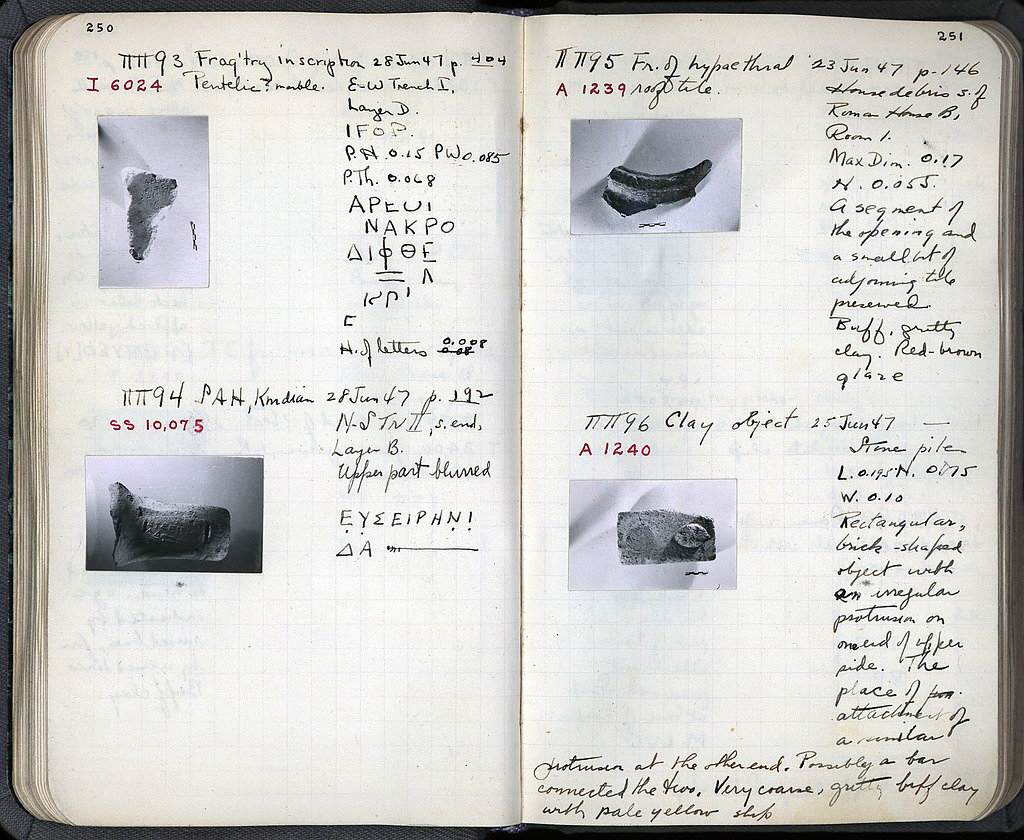 250
ΠΠ93 Frag'try inscription 28 Jun 47 p. 404
I 6024 Pentelic? marble. E-W Trench I,
Layer D.
IFOP.
P.H. 0.15 PW 0.085
P.Th. 0.068
ΑΡΕ
ΝΑΚΡΟ
ΔΙΦΘΕ
Ξ Λ
Ε
H. of letters 0.008
0.08
ΠΠ94 SAH, Knidian 28 Jun 47 p. 192
SS 10,075 N-S Tr II, s. end,
Layer B.
Upper part blurred
ΕΥΣΕΙΡΗΝΙ
ΔΑ
251
ΠΠ95 Fr. of hypaethral 23 Jun 47 p. 146
A 1239 rooftile. House debris s. of
Roman House B,
Room 1.
Max Dim. 0.17
H. 0.055.
A segment of
the opening and
a small bit of
adjoining tile
preserved.
Buff, gritty
clay. Red-brown
glaze
ΠΠ96 Clay object 25 Jun 47 —
A 1240 Stone pile
L. 0.195 H. 0.075
W. 0.10
Rectangular,
brick-shaped
object with
an irregular
protrusion on
one end of upper
side. The
place of
attachment of
a similar
protrusion at the other end. Possibly a bar
connected the two. Very coarse, gritty buff clay
with pale yellow slip